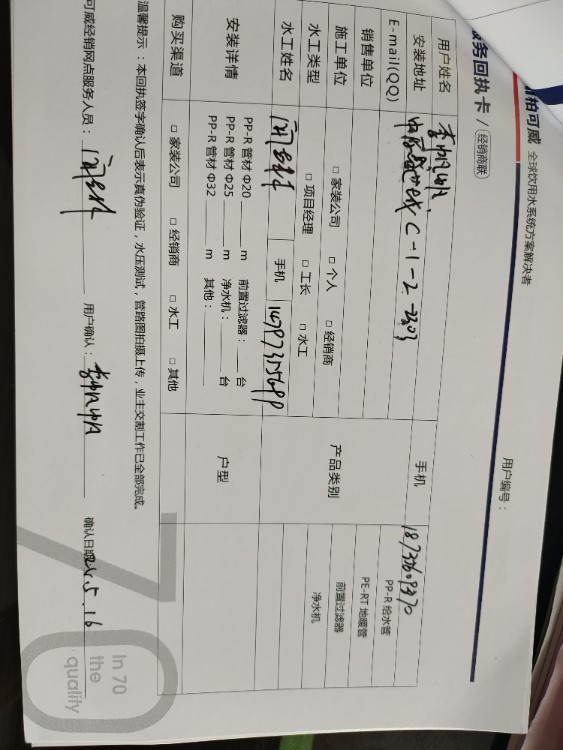 柏可威 全球饮用水系统方案解决者
服务回执卡 / 经销商联
用户编号：
用户姓名
手机
安装地址 C-1-2-2303
E-mail(QQ)
销售单位
产品类别 PP-R 给水管
施工单位 □ 家装公司 □ 个人 □ 经销商
PE-RT 地暖管
水工类型 □ 项目经理 □ 工长 □ 水工
前置过滤器
水工姓名 手机
净水机
安装详情 PP-R 管材 Φ20 m 前置过滤器： 台
PP-R 管材 Φ25 m 净水机： 台
PP-R 管材 Φ32 m 其他：
户型
购买渠道 □ 家装公司 □ 经销商 □ 水工 □ 其他
温馨提示：本回执签字确认后表示真伪验证，水压测试，管路图拍摄上传，业主交割工作已全部完成。
可威经销网点服务人员： 用户确认： 确认日期 24.5.16
70
In 70
the
quality